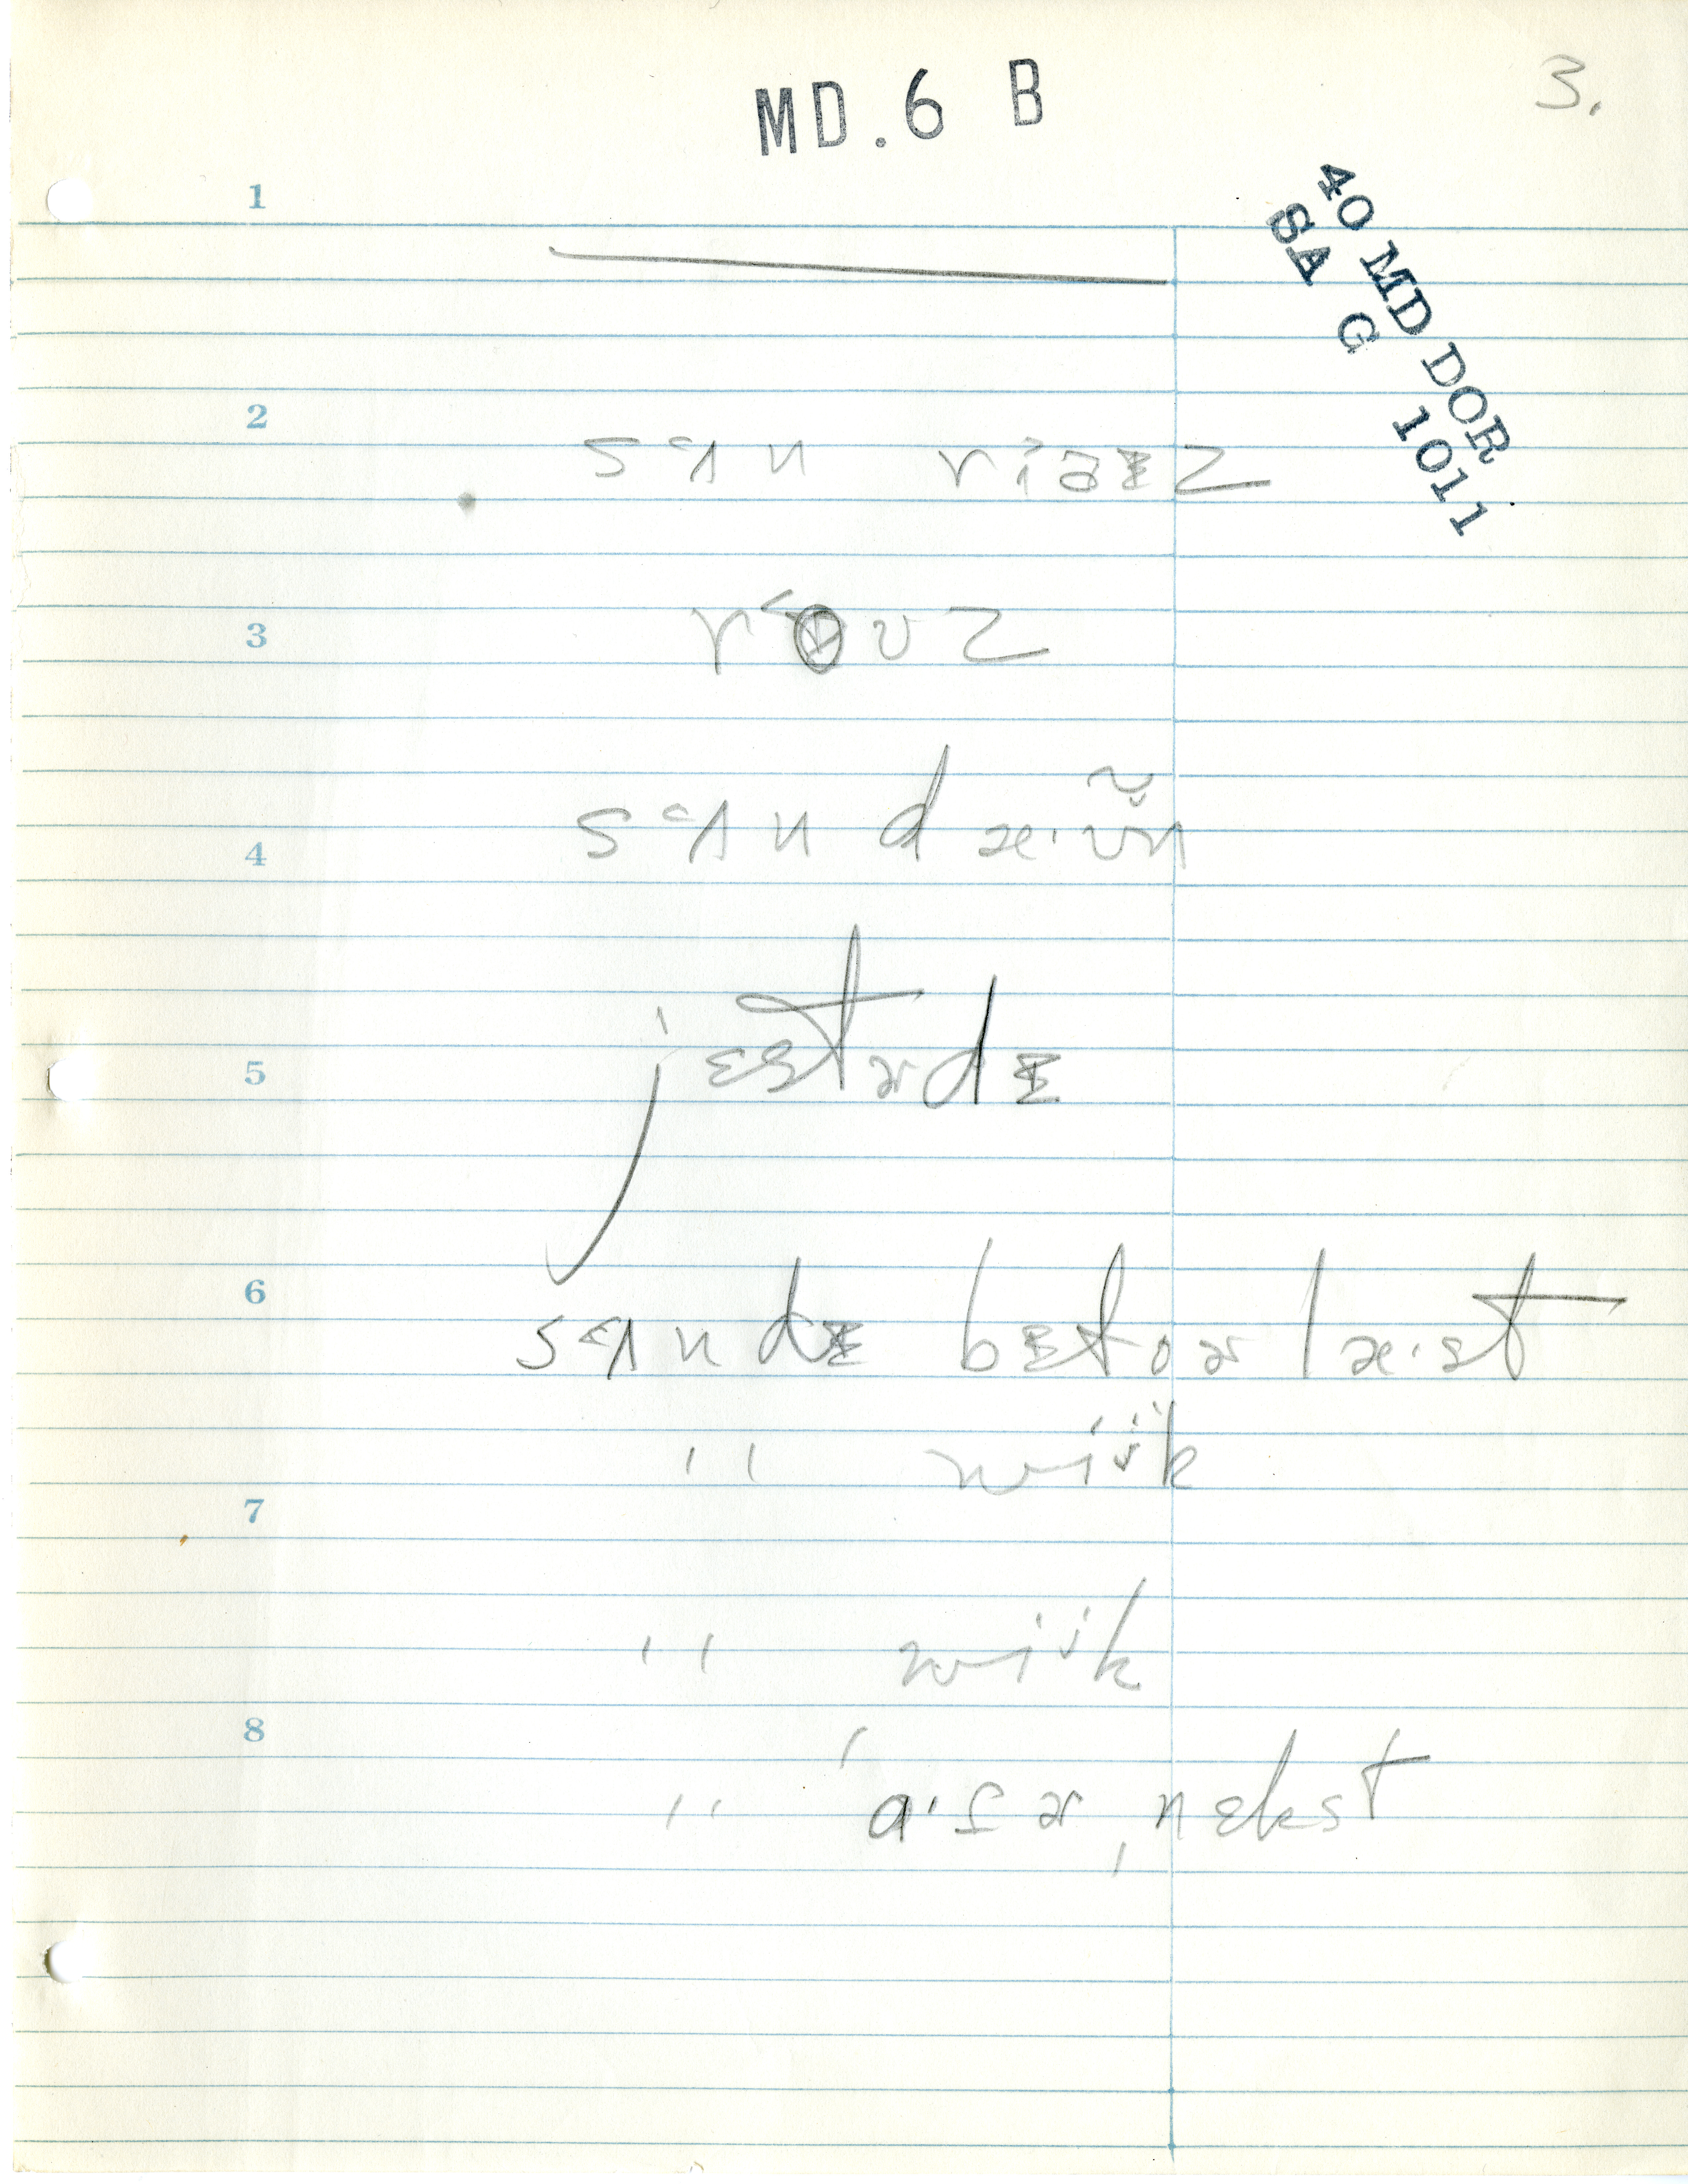 3.
MD.6 B
40 MD DOR
SA G 1011
1
2
sʌ˂n riəɪz
3
r˂oʊz
4
sʌ˂n dæ·ʊ̃n
5
jɛstɚdɪ
6
sʌ˂ndɪ bɪfoɚ læ·st
" wiik
7
" wiik
8
" a·ftɚ nɛkst